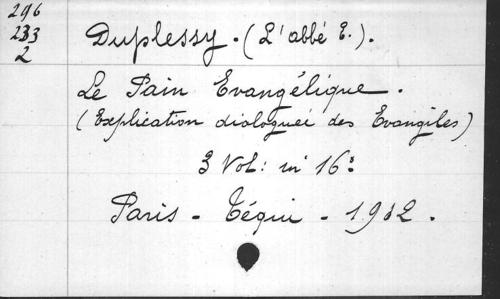 296
233
2
Duplessy. (L'abbé E.).
Le Pain Evangélique.
(Explication dialoguée des Evangiles)
3 Vol: in 16°
Paris - Téqui - 1912.